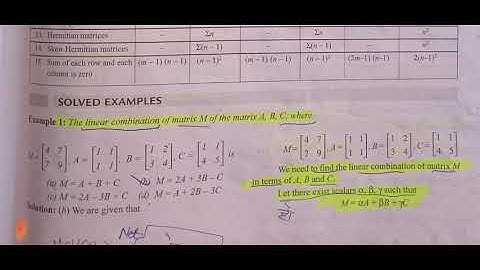 13. Hermitian matrices – Σn – Σn – n²
14. Skew Hermitian matrices – Σ(n – 1) – Σ(n – 1) – n²
15. Sum of each row and each column is zero (m – 1) (n – 1) (n – 1)² (m – 1) (n – 1) (n – 1)² (2m – 1) (n – 1) 2(n – 1)²
SOLVED EXAMPLES
Example 1: The linear combination of matrix M of the matrix A, B, C, where
M = [4 7; 7 9], A = [1 1; 1 1], B = [1 2; 3 4], C = [1 1; 4 5] is
(a) M = A + B + C (b) M = 2A + 3B – C
(c) M = 2A – 3B + C (d) M = A + 2B – 3C
Solution: (b) We are given that
M = [4 7; 7 9], A = [1 1; 1 1], B = [1 2; 3 4], C = [1 1; 4 5]
We need to find the linear combination of matrix M
in terms of A, B and C.
Let there exist scalars α, β, γ such that
M = αA + βB + γC